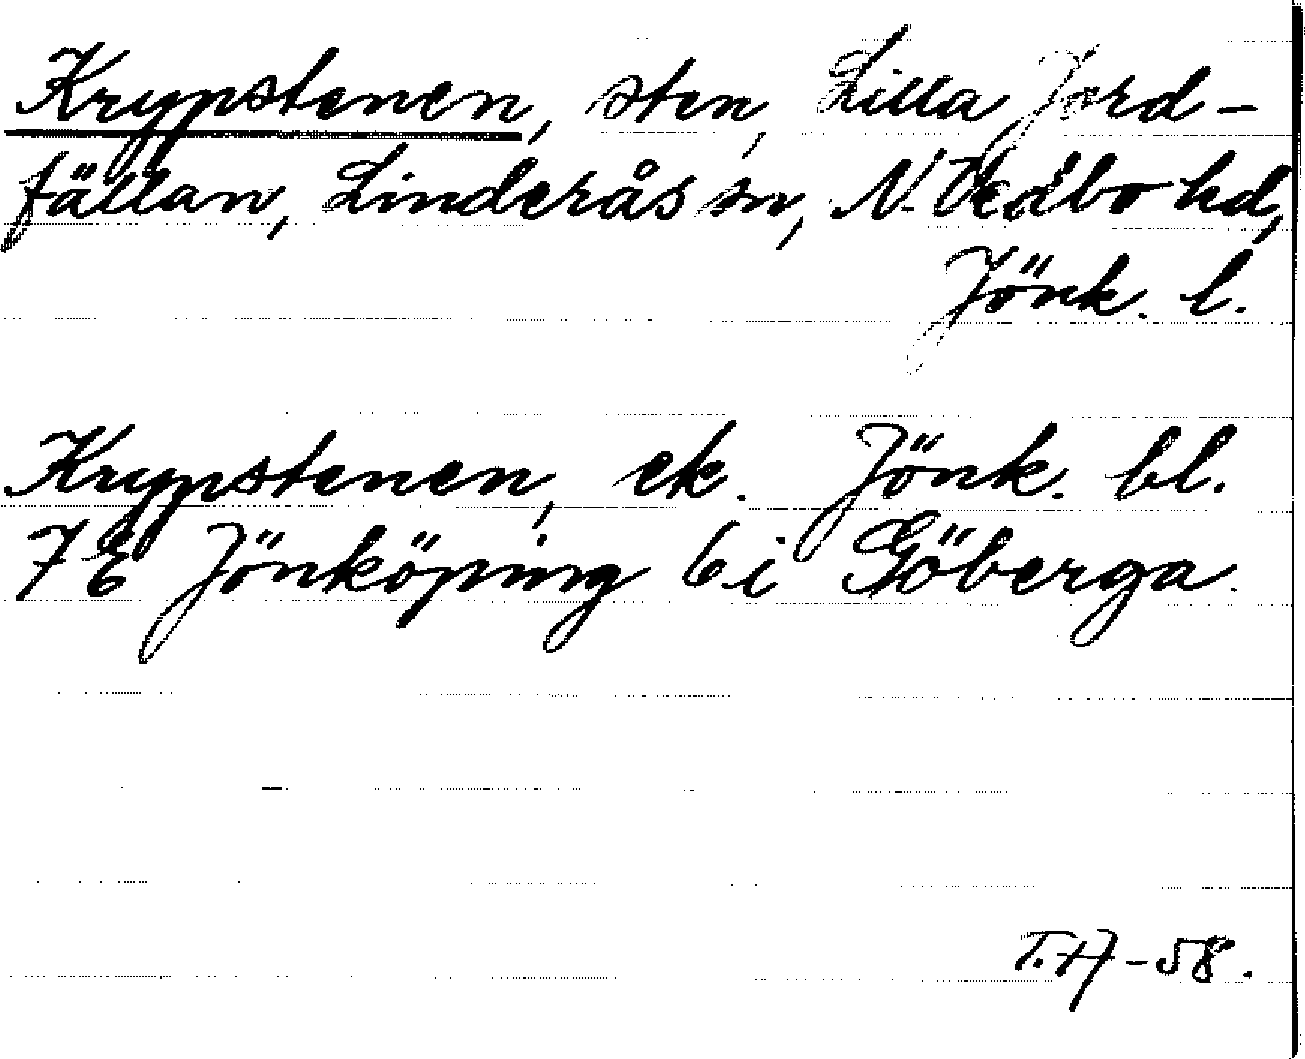 Krypstenen, sten, Lilla Jord-
fällan, Linderås sn, N. Vedbo hd,
Jönk. l.
Krypstenen, ek. Jönk. bl.
7 E Jönköping 6 i Göberga.
T. H-58.